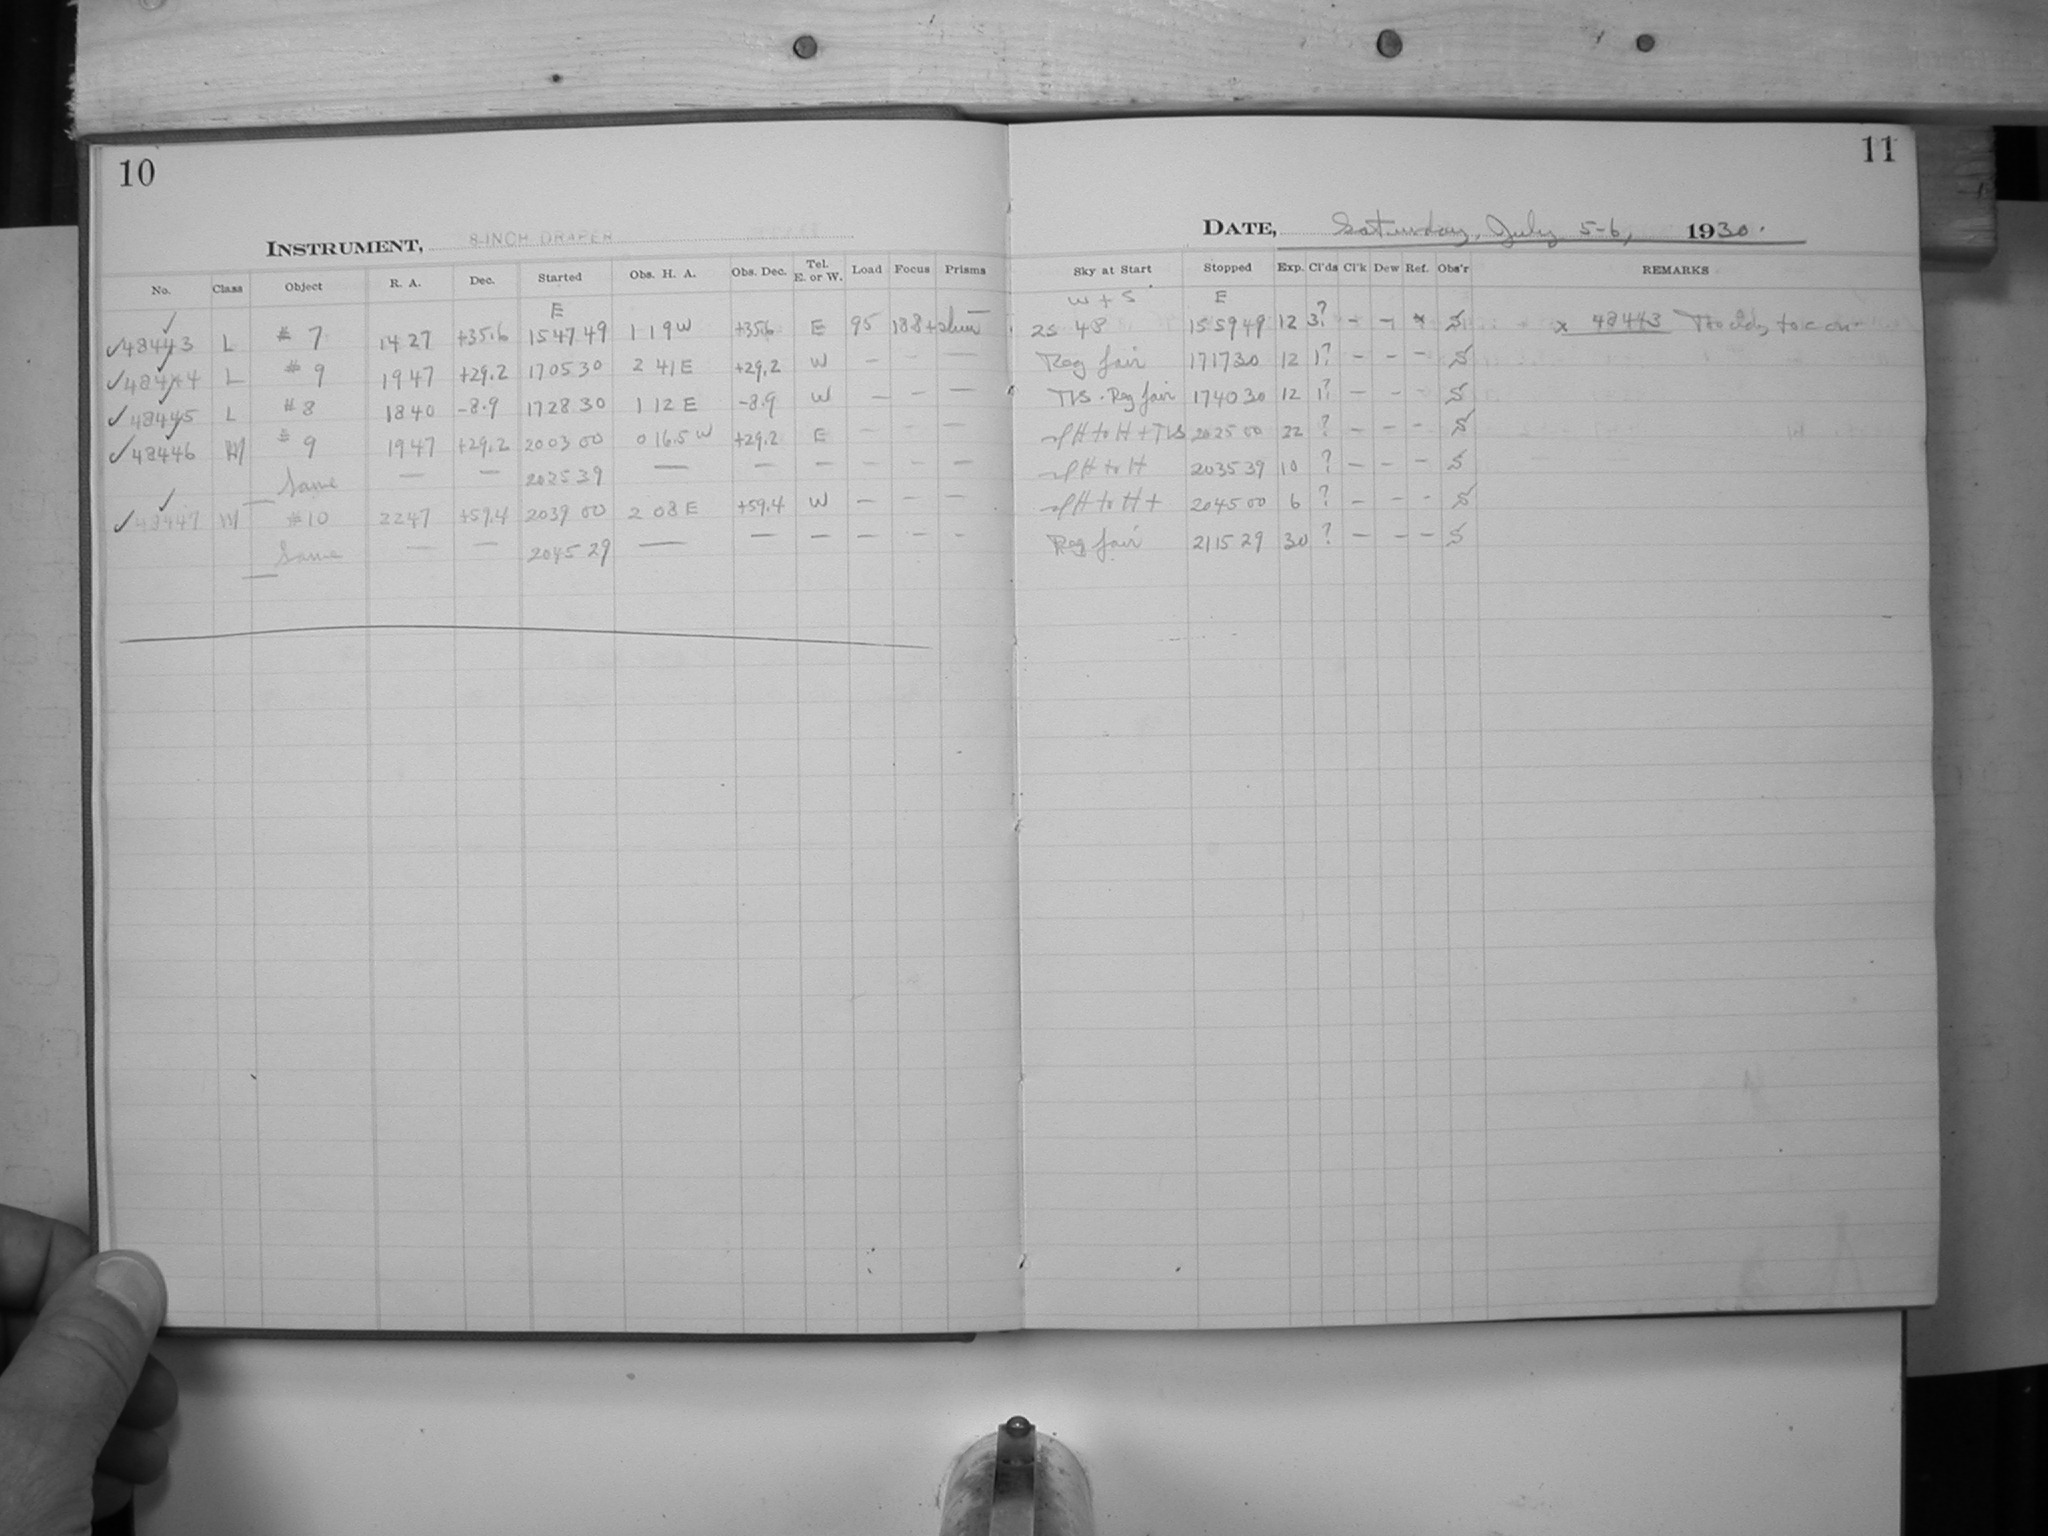 10
INSTRUMENT, 8-INCH DRAPER
No. Class Object R. A. Dec. Started Obs. H. A. Obs. Dec. Tel. E. or W. Load Focus Prisms
E
✓48443 L #7 1427 +35.6 154749 1 19W +35.6 E 95 188+
✓48444 L #9 1947 +29.2 170530 2 41E +29.2 W — — —
✓48445 L #8 1840 -8.9 172830 1 12E -8.9 W — — —
✓48446 M #9 1947 +29.2 200300 0 16.5W +29.2 E — — —
Same — — 202539 — — — — — —
✓48447 M #10 2247 +59.4 203900 2 08E +59.4 W — — —
Same — — 204529 — — — — — —
11
DATE, Saturday, July 5-6, 1930.
Sky at Start Stopped Exp. Cl'ds Cl'k Dew Ref. Obs'r REMARKS
W + S E
25 48 155949 12 3? — — * S x 48443
Reg fair 171730 12 1? — — — S
TIS. Reg fair 174030 12 1? — — — S
H to H + TIS 202500 22 ? — — — S
H to H 203539 10 ? — — — S
H to H + 204500 6 ? — — — S
Reg fair 211529 30 ? — — — S